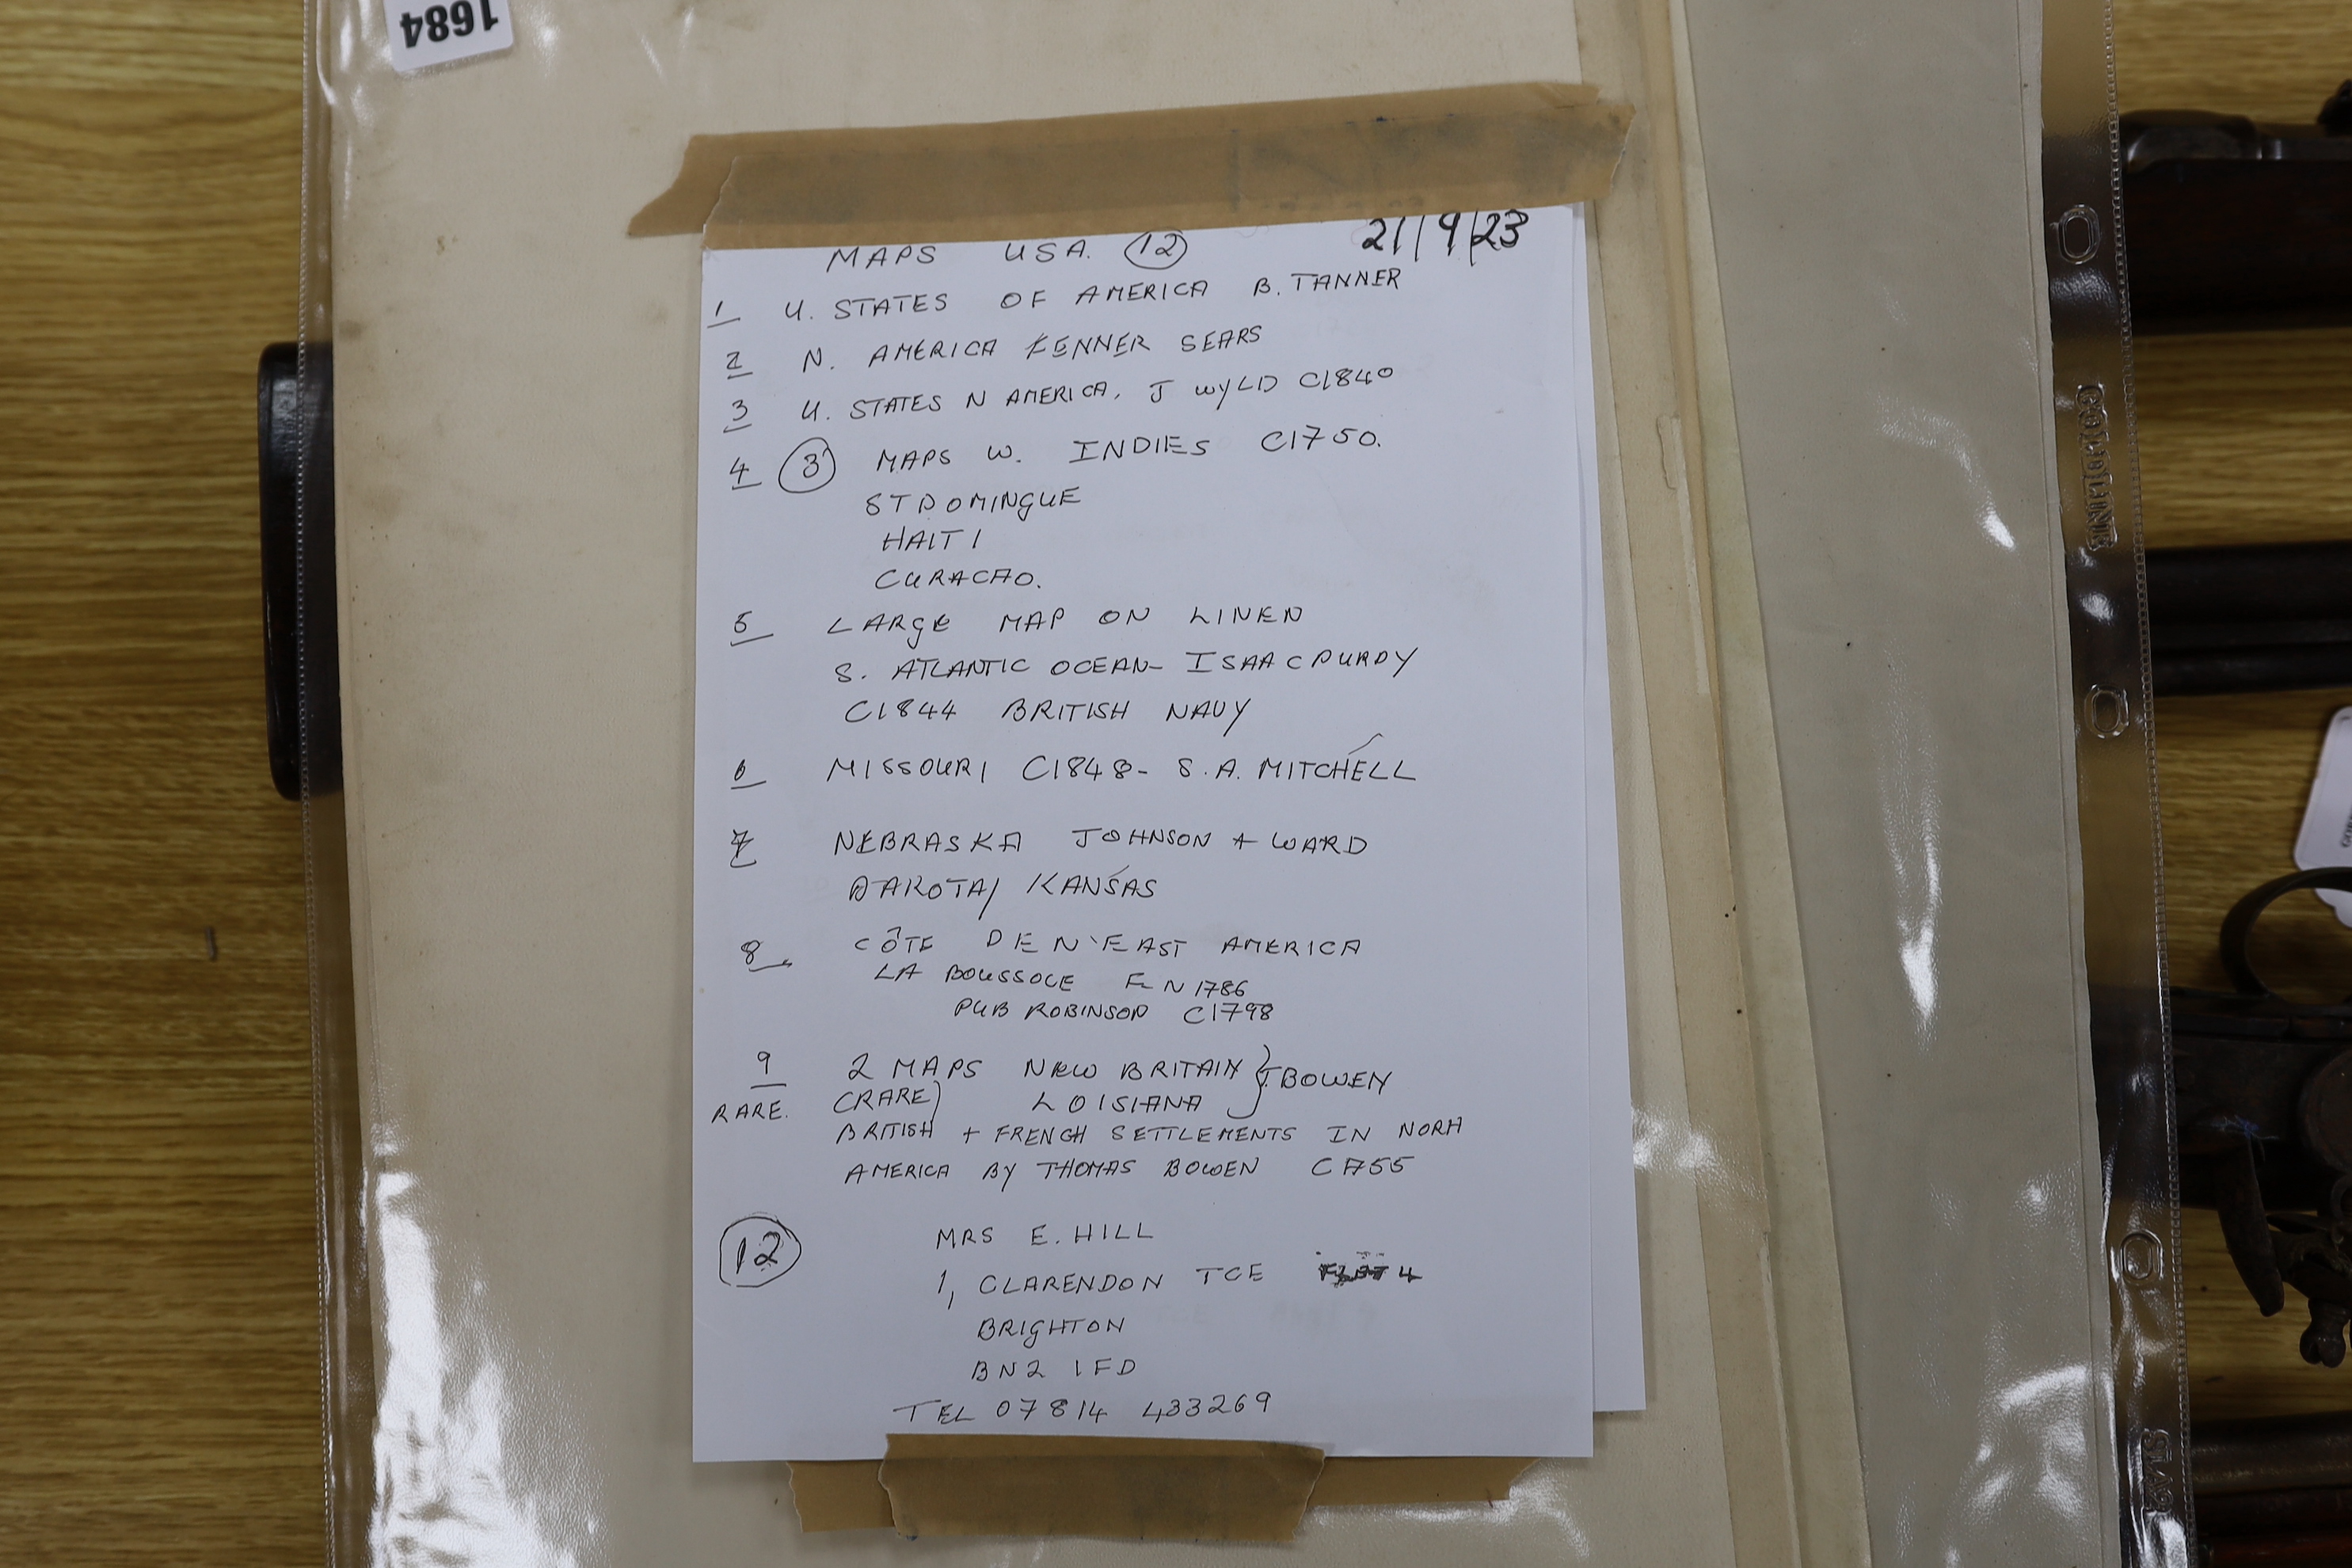 1684
MAPS USA. 12 21/9/23
1 U. STATES OF AMERICA B. TANNER
2 N. AMERICA FENNER SEARS
3 U. STATES N AMERICA, J WYLD C1840
4 3 MAPS W. INDIES C1750.
ST DOMINGUE
HAITI
CURACAO.
5 LARGE MAP ON LINEN
S. ATLANTIC OCEAN- ISAAC PURDY
C1844 BRITISH NAVY
6 MISSOURI C1848- S.A. MITCHELL
7 NEBRASKA JOHNSON + WARD
DAKOTA/ KANSAS
8. CÔTE DE N'EAST AMERICA
LA BOUSSOLE 1786
PUB ROBINSON C1798
9 2 MAPS NEW BRITAIN } T BOWEN
RARE. (RARE) LOISIANA
BRITISH + FRENCH SETTLEMENTS IN NORH
AMERICA BY THOMAS BOWEN C1755
12 MRS E. HILL
1, CLARENDON TCE 4
BRIGHTON
BN2 1FD
TEL 07814 433269
COLLINS